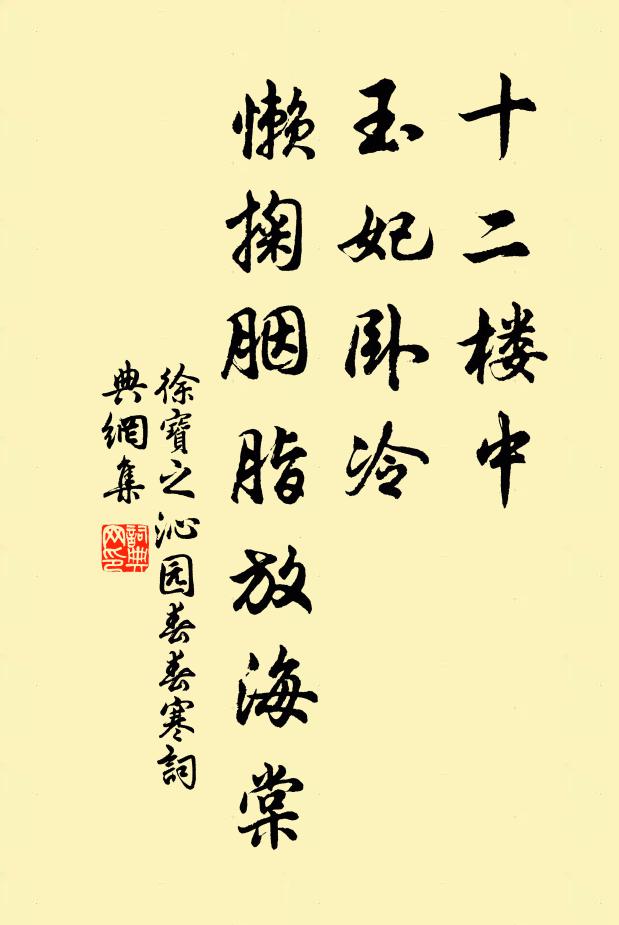 十二楼中
玉妃卧冷
懒掬胭脂放海棠
徐寶之沁园春春寒詞
典網集
詞典網印